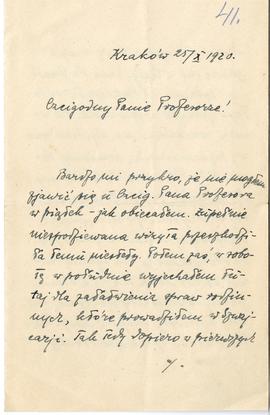 41.
Kraków 25/X 1920.
Czcigodny Panie Profesorze!
Bardzo mi przykro, że nie mogłem
zjawić się u Czcig. Pana Profesora
w piątek – jak obiecałem. Zupełnie
niespodziewana wizyta przeszkodzi-
ła temu niestety. Potem zaś, w sobo-
tę w południe wyjechałem tu-
taj dla załatwienia spraw rodzin-
nych, które prowadziłem w
Tak tedy dopiero w pierwszych
./.